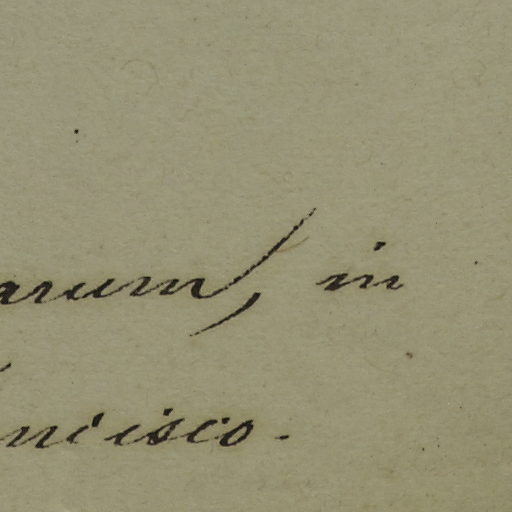 arum), in
ncisco.